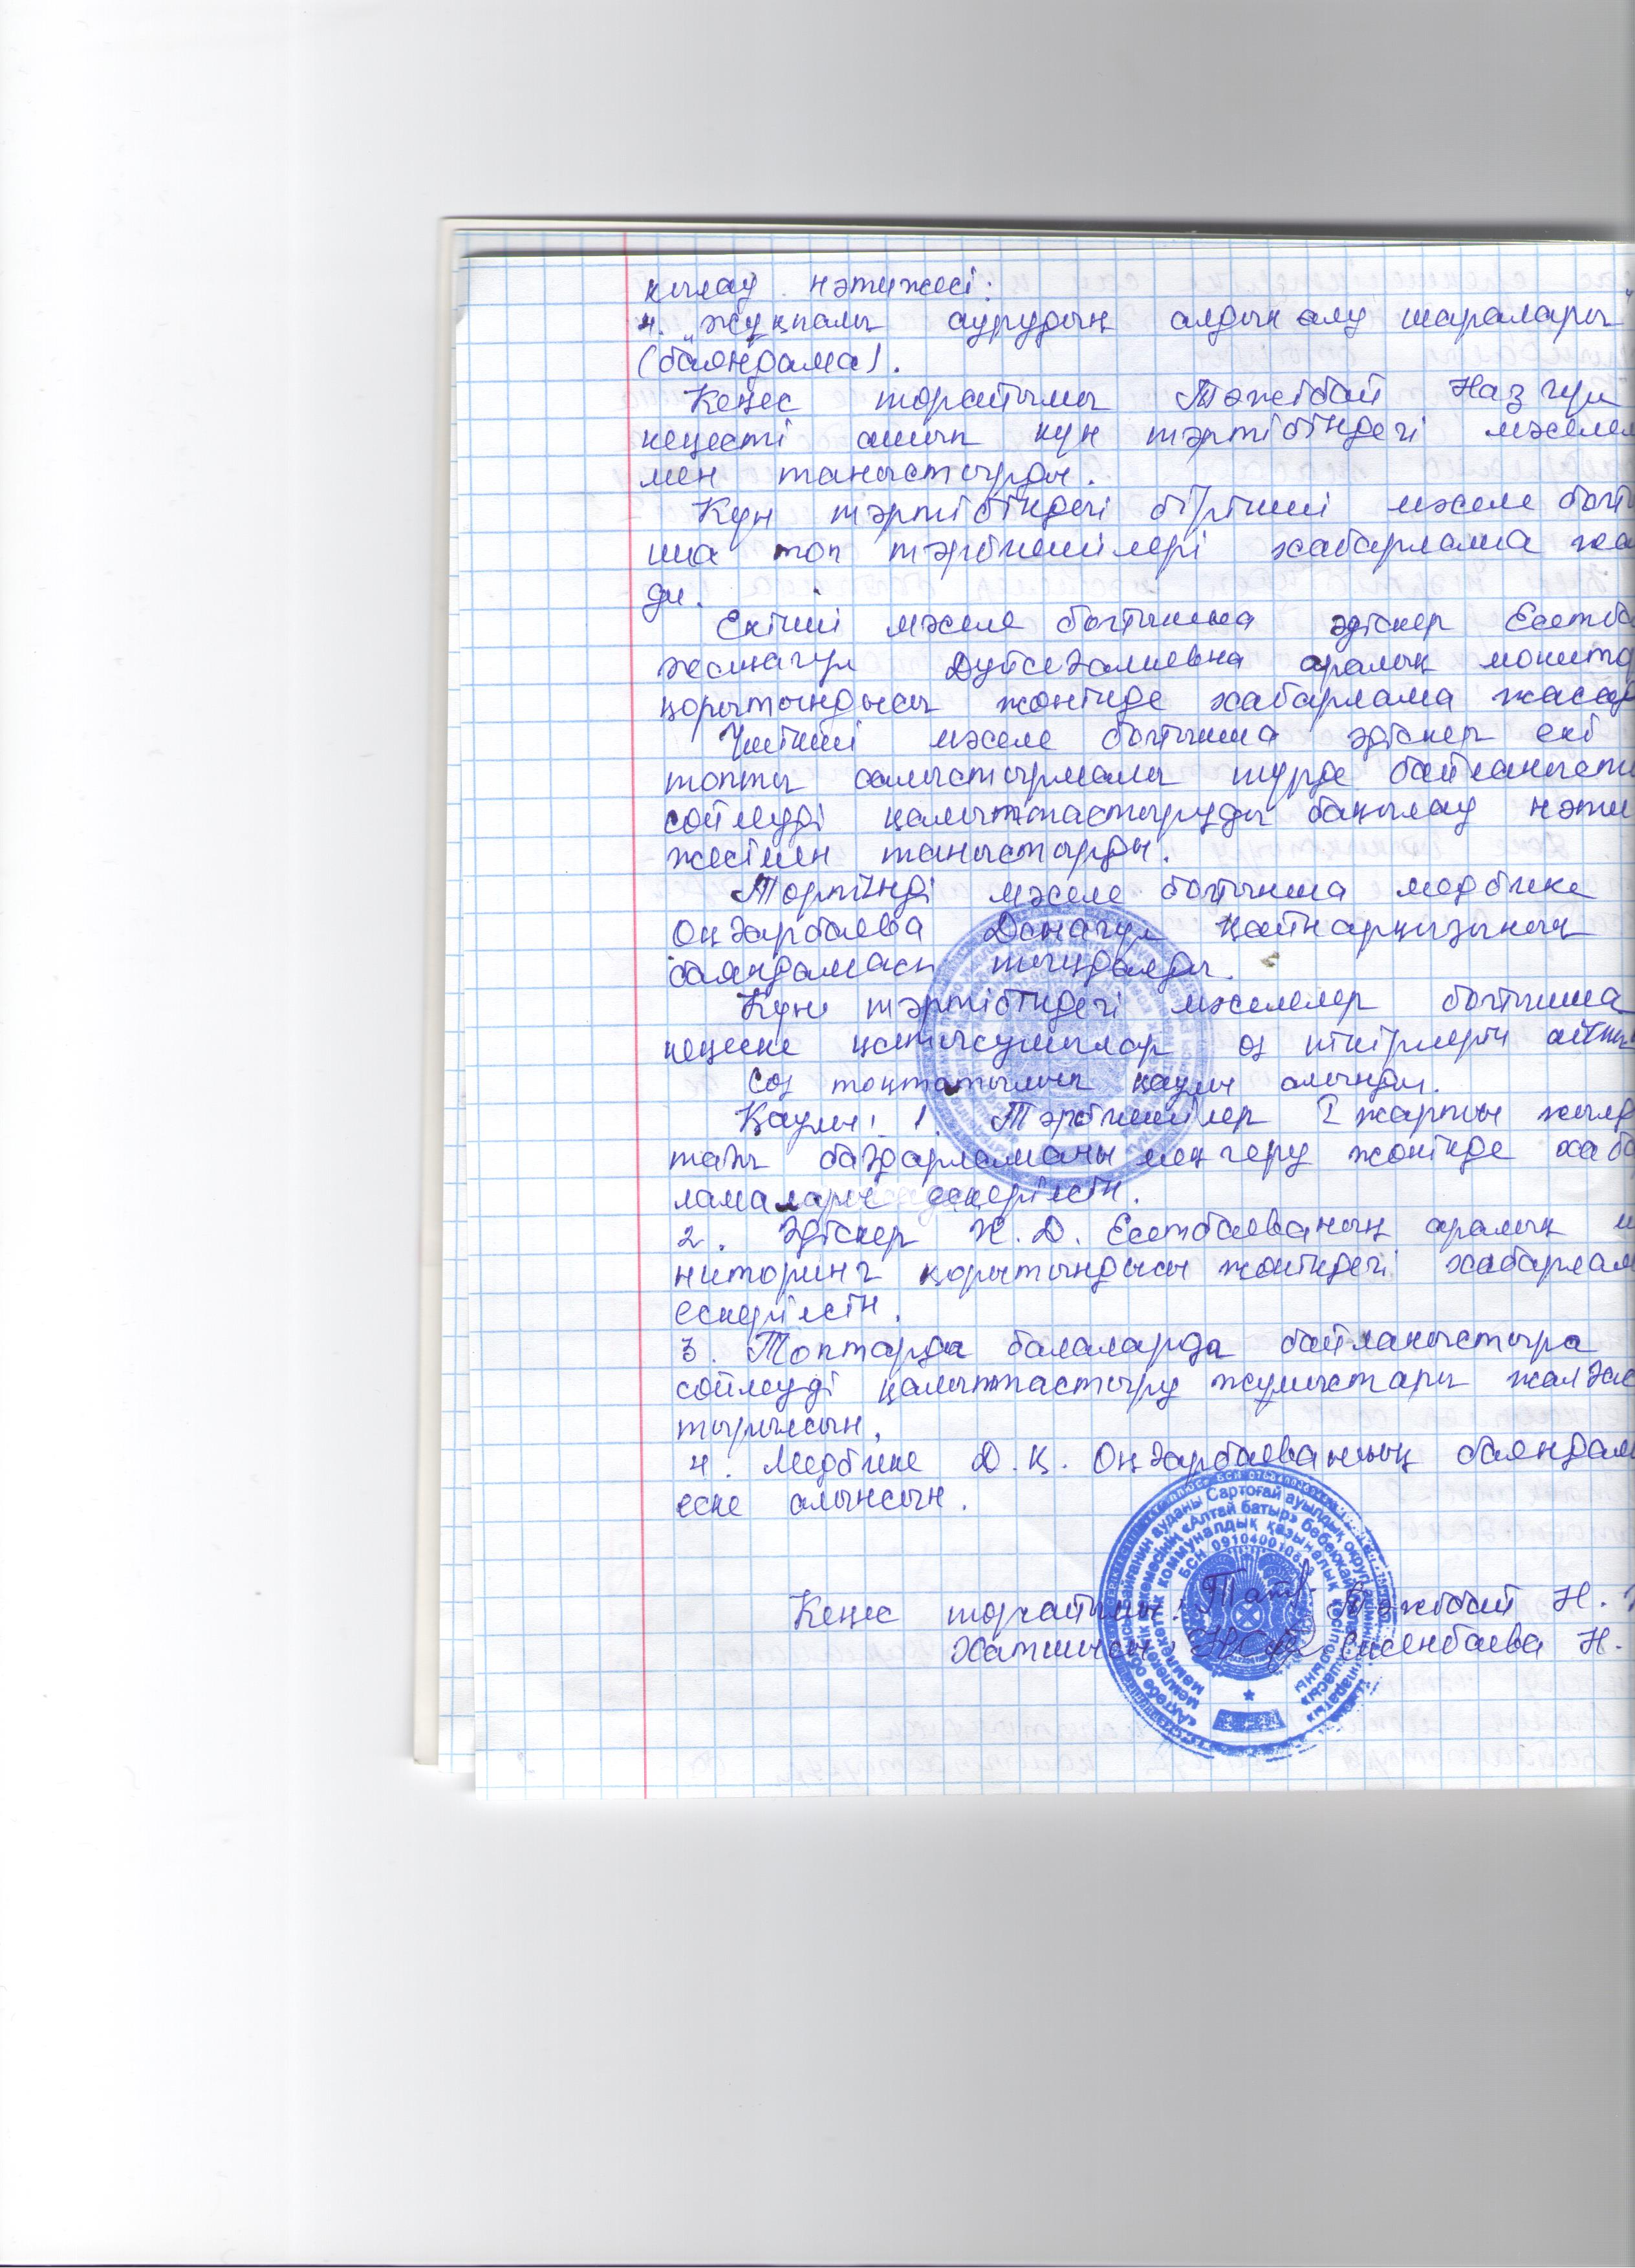 қылау нәтижесі:
4. „Жұқпалы аурудың алдын алу шаралары"
(баяндама).
Кеңес төрайымы Тәжібай Назгүл
кеңесті ашып күн тәртібіндегі мәселел
мен таныстырды.
Күн тәртібіндегі бірінші мәселе бойы
ша топ тәрбиешілері хабарлама жа
ды.
Екінші мәселе бойынша әдіскер Есетба
Жаңагүл Дүйсеғалиевна аралық монито
қорытындысы жөнінде хабарлама жасад
Үшінші мәселе бойынша әдіскер екі
топты салыстырмалы түрде байланысты
сөйлеуді қалыптастыруды бақылау нәти
жесімен таныстырды.
Төртінді мәселе бойынша медбике
Оңғарбаева Данагүл Қайнарқызының
баяндамасы тыңдалды.
Күн тәртібіндегі мәселелер бойынша
кеңеске қатысушылар өз пікірлерін айтып
Сөз тоқтатылып қаулы алынды.
Қаулы: 1. Тәрбиешілер I жарты жылд
тағы бағдарламаны меңгеру жөнінде хаба
ламалары ескерілсін.
2. Әдіскер Ж.Д. Есетбаеваның аралық м
ниторинг қорытындысы жөніндегі хабарлам
ескерілсін.
3. Топтарда балаларда байланыстыра
сөйлеуді қалыптастыру жұмыстары жалғас
тырылсын.
4. Медбике Д.Қ. Оңғарбаеваның баяндам
еске алынсын.
Кеңес төрайымы: Тәжібай Н.
Хатшысы: Есенбаева Н.
Сартоғай ауылдық округі
«Алтай батыр» бөбекжай
мемлекеттік коммуналдық қазыналық кәсіпорны